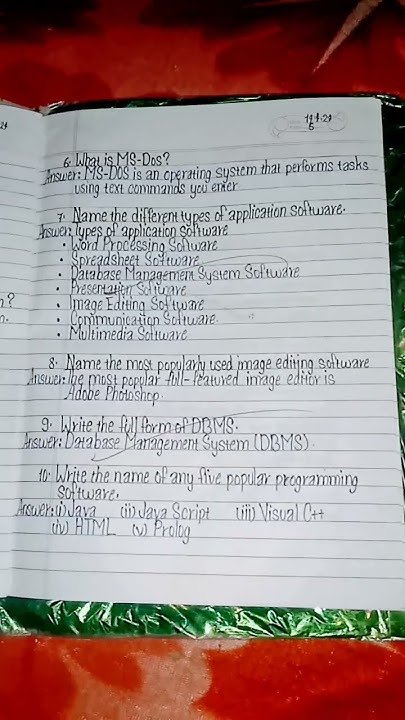 6. What is MS-Dos?
Answer: MS-DOS is an operating system that performs tasks
using text commands you enter
7. Name the different types of application software.
Answer: Types of application software
• Word Processing Software
• Spreadsheet Software
• Database Management System Software
• Presentation Software
• Image Editing Software
• Communication Software.
• Multimedia Software
8. Name the most popularly used image editing software
Answer: The most popular full-featured image editor is
Adobe Photoshop.
9. Write the full form of DBMS.
Answer: Database Management System (DBMS).
10. Write the name of any five popular programming
software.
Answer: i) Java (ii) Java Script (iii) Visual C++
(iv) HTML (v) Prolog